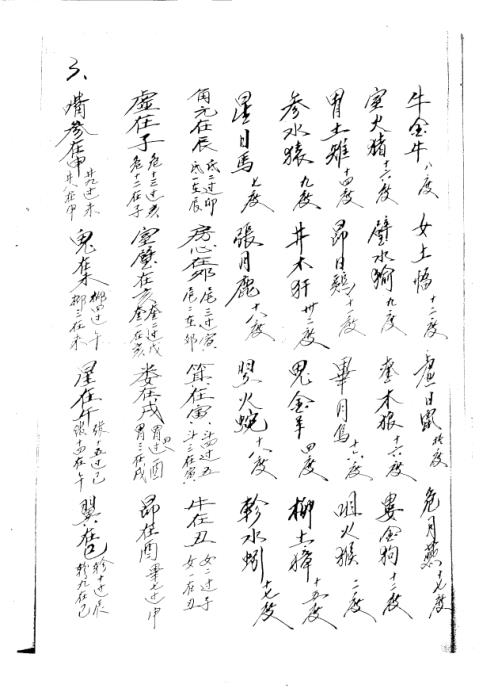 牛金牛 八度 女土蝠 十二度 虚日鼠 度 危月燕 十七度
室火猪 十六度 壁水㺄 九度 奎木狼 十六度 娄金狗 十二度
胃土雉 十四度 昴日鸡 十一度 毕月乌 十六度 觜火猴 二度
参水猿 九度 井木犴 卅二度 鬼金羊 四度 柳土獐 十五度
星日馬 七度 張月鹿 十八度 翌火蛇 十八度 軫水蚓 十七度
角亢在辰 氐二过卯 氐一在辰 房心在卯 尾三过寅 尾二在卯 箕在寅 斗四过丑 斗三在寅 牛在丑 女二过子 女一在丑
虚在子 危十三过亥 危十二在子 室壁在亥 奎二过戌 奎一在亥 娄在戌 胃四过酉 胃三在戌 昴在酉 毕七过申
3、
嘴参在申 井九过未 井八在申 鬼在未 柳四过午 柳三在未 星在午 张十五过巳 张十四在午 翼在巳 軫十过辰 軫九在巳